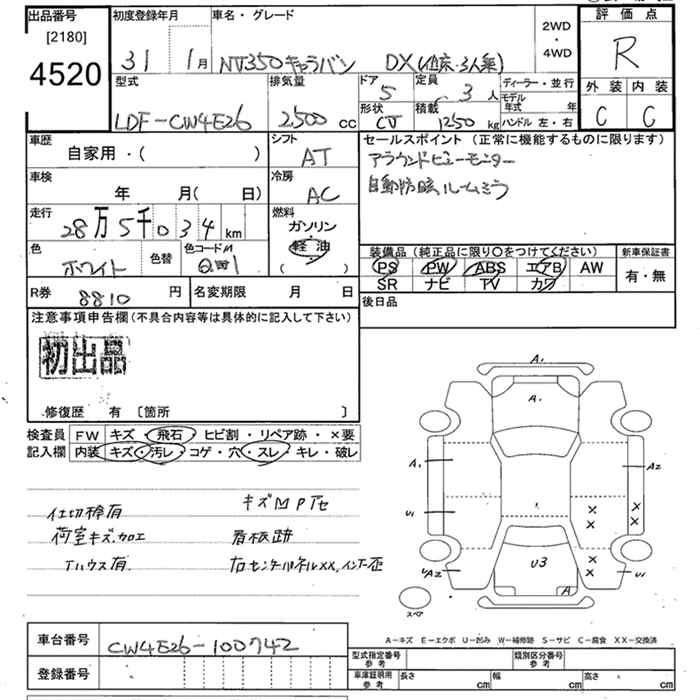 出品番号
[2180]
4520
初度登録年月
31 1月
車名・グレード
NV350キャラバン DX(低床・3人乗)
2WD
・
4WD
評価点
R
外装 内装
C C
型式
LDF-CW4E26
排気量
2500 cc
ドア
5
定員
3人
形状
CV
積載
1250 kg
ディーラー・並行
モデル年式 年
ハンドル 左・右
車歴
自家用・( )
シフト
AT
セールスポイント (正常に機能するものに限ります)
アラウンドビューモニター
自動防眩ルームミラー
車検
年 月( 日)
冷房
AC
走行
28万5千034km
燃料
ガソリン
・
軽油
・
( )
色
ホワイト
色替
色コードM
装備品 (純正品に限り○をつけてください)
PS PW ABS エアB AW
SR ナビ TV カワ
新車保証書
有・無
R券
8810 円
名変期限 月 日
後日品
注意事項申告欄 (不具合内容等は具体的に記入して下さい)
初出品
修復歴 有 [箇所 ]
検査員記入欄
FW キズ・飛石・ヒビ割・リペア跡・×要
内装 キズ・汚レ・コゲ・穴・スレ・キレ・破レ
仕切棒有 キズMPTセ
荷室キズ.加エ 看板跡
Tハウス有. 右センターパネルXX.インナー歪
A1
A1
A1
A2
U1
U3
A
UA2
U1
×
×
×
×
×
×
スペア
A-キズ E-エクボ U-凹み W-補修跡 S-サビ C-腐食 XX-交換済
車台番号
CW4E26-100742
登録番号
型式指定番号
参考
類別区分番号
参考
車庫証明用
参考
長さ cm 幅 cm 高さ cm